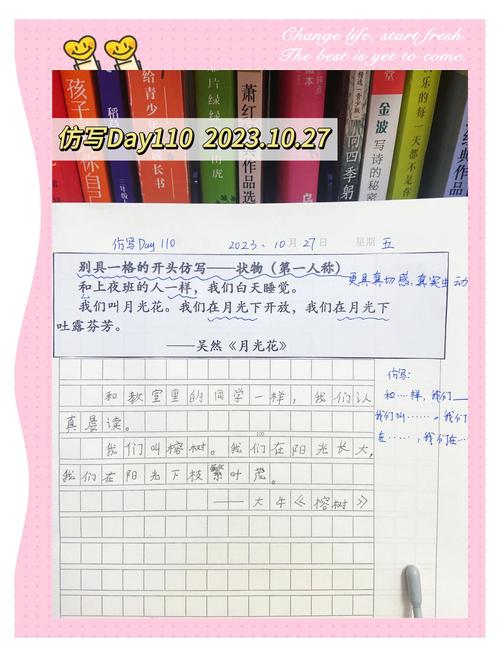 Change life, start fresh.
The best is yet to come.
孩子
你自己
稻
给青少年
成长书
片绿
虎
萧红
作品选
问四季
金波
写诗的秘密
乐的每一天都不
经典作品
仿写Day110 2023.10.27
仿写Day 110 2023、10月27日 星期五
别具一格的开头仿写——状物（第一人称）
和上夜班的人一样，我们白天睡觉。
更具真切感，真实生动
我们叫月光花。我们在月光下开放，我们在月光下
吐露芬芳。
——吴然《月光花》
仿写：
和…样，我们__
我们叫……。我们
在……，我们在…
和教室里的同学一样，我们认
真晨读。
我们叫榕树。我们在阳光长大，
100
我们在阳光下枝繁叶茂。
——大午《榕树》